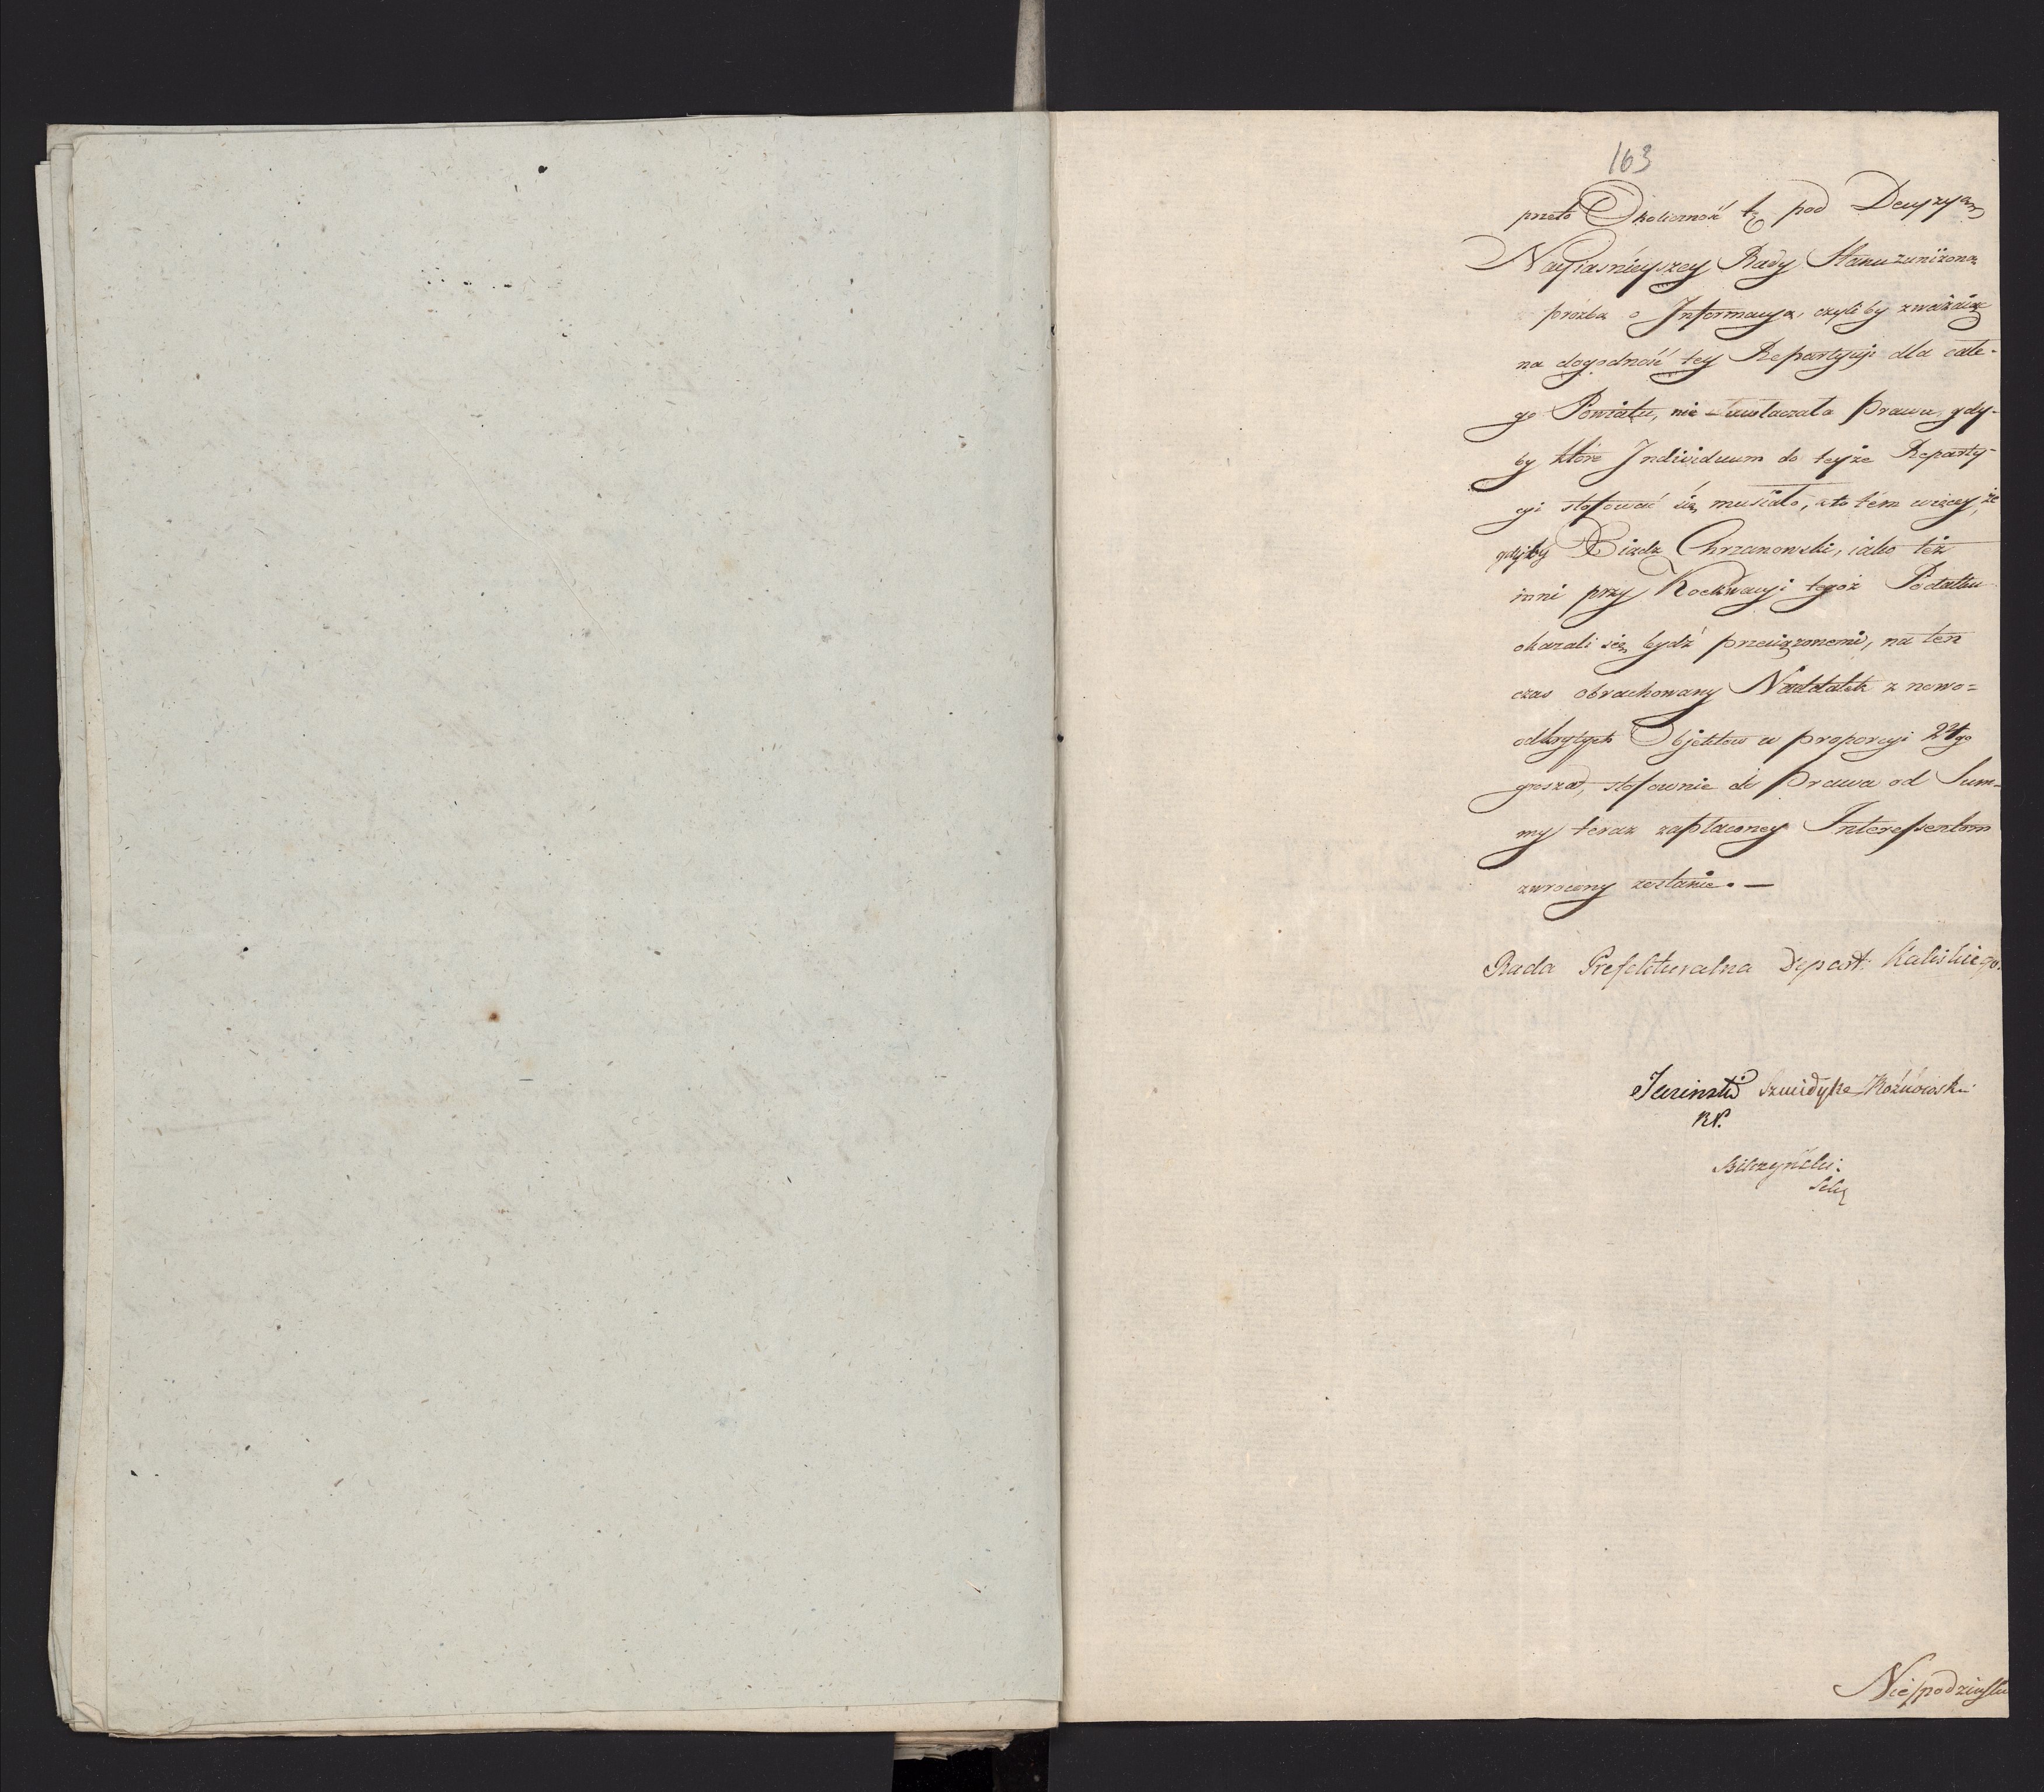 163
przeto Okoliczność tę pod Decyzyą
Nayiaśnieyszey Rady Stanu z uniżoną
prożbą o Informacyą, czyliby zważaiąc
na dogodność tey Repartycyi dla całe-
go Powiatu, nie uwłaczało Prawu, gdy-
by które Individuum do teyże Reparty-
cyi stosować się musiało, a to tém więcey, że
gdyby Xiądz Chrzanowski, iako też
inni przy Koekwacyi tegoż Podatku
okazali się bydź przeciążonemi, na ten
czas obrachowany Naddatek z nowo=
odkrytych Objektów w proporcyi 24go
grosza, stosownie do Prawa od Sum-
my teraz zapłaconey Interessentom
zwrocony zostanie. —
Rada Prefekturalna Depart: Kaliskiego.
Koźuchowski
RP.
Bilczyński.
Sekr
Niespodziański